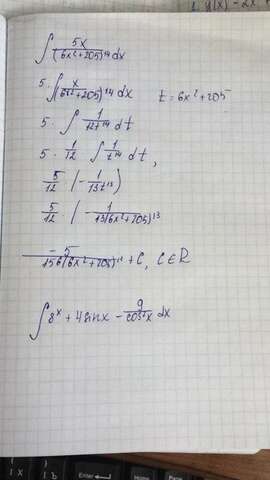 ∫ 5x/(6x²+205)¹⁴ dx
5 · ∫ x/(6x²+205)¹⁴ dx t = 6x²+205
5 · ∫ 1/12t¹⁴ dt
5 · 1/12 ∫ 1/t¹⁴ dt,
5/12 (-1/13t¹³)
5/12 (-1/13(6x²+205)¹³
-5/156(6x²+205)¹³ + C, C∈R
∫ 8ˣ + 4sinx - 9/cos²x dx
Enter